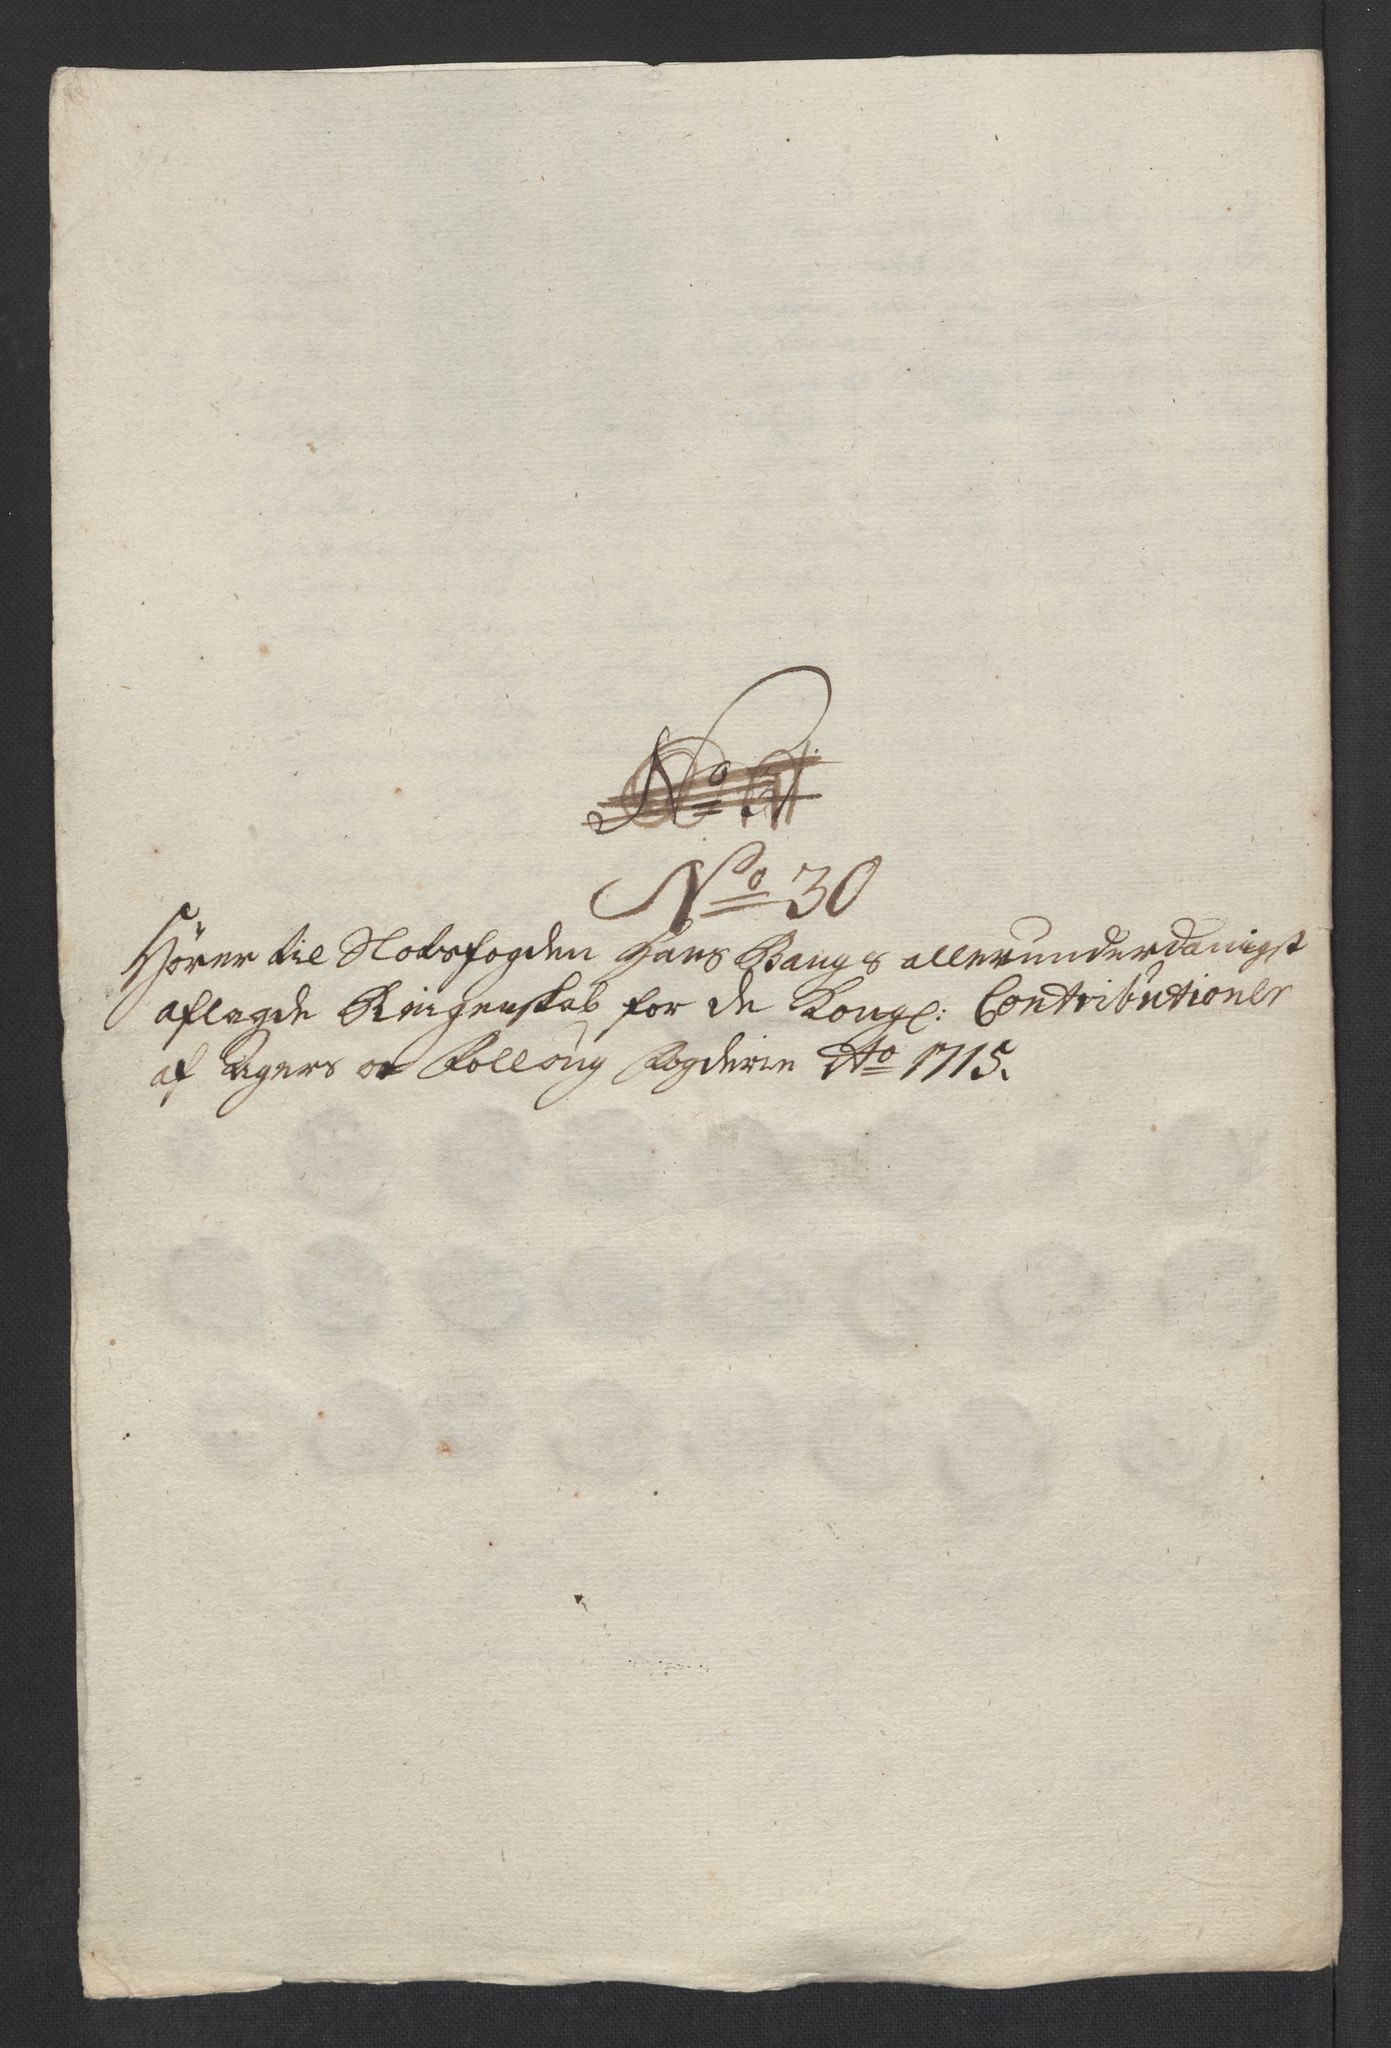 No 30
Hörer til Slotsfogden Hans Bangs allerunderdanigst
aflagde Reigenskab for de Kongl: Contributioner
af Agers oc Folloug Fogderie Ao 1715.